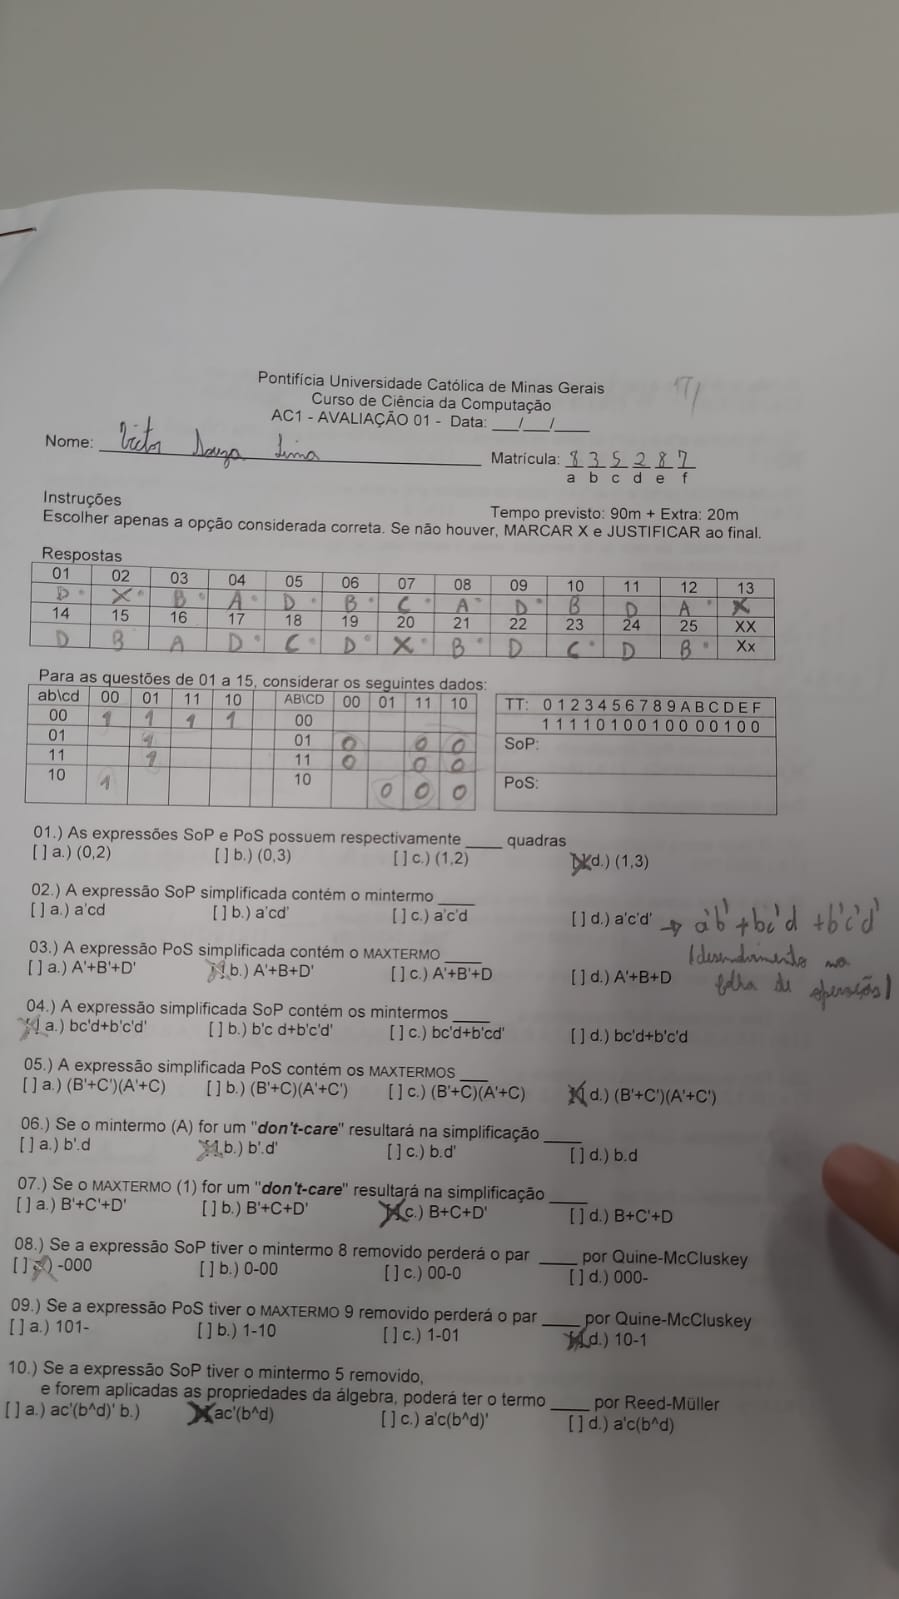 17/
Pontifícia Universidade Católica de Minas Gerais
Curso de Ciência da Computação
AC1 - AVALIAÇÃO 01 - Data: ___/___/____
Nome: Victor Souza Lima Matrícula: 8 3 5 2 8 7
a b c d e f
Instruções Tempo previsto: 90m + Extra: 20m
Escolher apenas a opção considerada correta. Se não houver, MARCAR X e JUSTIFICAR ao final.
Respostas
01 02 03 04 05 06 07 08 09 10 11 12 13
D X B A D B C A D B D A X
14 15 16 17 18 19 20 21 22 23 24 25 XX
D B A D C D X B D C D B Xx
Para as questões de 01 a 15, considerar os seguintes dados:
ab\cd 00 01 11 10 AB\CD 00 01 11 10 TT: 0 1 2 3 4 5 6 7 8 9 A B C D E F
00 1 1 1 1 00 1 1 1 1 0 1 0 0 1 0 0 0 0 1 0 0
01 1 01 0 0 0 SoP:
11 1 11 0 0 0
10 1 10 0 0 0 PoS:
01.) As expressões SoP e PoS possuem respectivamente ____ quadras
[ ] a.) (0,2) [ ] b.) (0,3) [ ] c.) (1,2) [X] d.) (1,3)
02.) A expressão SoP simplificada contém o mintermo ____
[ ] a.) a'cd [ ] b.) a'cd' [ ] c.) a'c'd [ ] d.) a'c'd' → a'b' + bc'd + b'c'd'
(desenvolvimento na
folha de operação)
03.) A expressão PoS simplificada contém o MAXTERMO ____
[ ] a.) A'+B'+D' [X] b.) A'+B+D' [ ] c.) A'+B'+D [ ] d.) A'+B+D
04.) A expressão simplificada SoP contém os mintermos ____
[X] a.) bc'd+b'c'd' [ ] b.) b'c d+b'c'd' [ ] c.) bc'd+b'cd' [ ] d.) bc'd+b'c'd
05.) A expressão simplificada PoS contém os MAXTERMOS ____
[ ] a.) (B'+C')(A'+C) [ ] b.) (B'+C)(A'+C') [ ] c.) (B'+C)(A'+C) [X] d.) (B'+C')(A'+C')
06.) Se o mintermo (A) for um "don't-care" resultará na simplificação ____
[ ] a.) b'.d [X] b.) b'.d' [ ] c.) b.d' [ ] d.) b.d
07.) Se o MAXTERMO (1) for um "don't-care" resultará na simplificação ____
[ ] a.) B'+C'+D' [ ] b.) B'+C+D' [X] c.) B+C+D' [ ] d.) B+C'+D
08.) Se a expressão SoP tiver o mintermo 8 removido perderá o par ____ por Quine-McCluskey
[ ] a.) -000 [ ] b.) 0-00 [ ] c.) 00-0 [ ] d.) 000-
09.) Se a expressão PoS tiver o MAXTERMO 9 removido perderá o par ____ por Quine-McCluskey
[ ] a.) 101- [ ] b.) 1-10 [ ] c.) 1-01 [X] d.) 10-1
10.) Se a expressão SoP tiver o mintermo 5 removido,
e forem aplicadas as propriedades da álgebra, poderá ter o termo ____ por Reed-Müller
[ ] a.) ac'(b^d)' b.) [X] ac'(b^d) [ ] c.) a'c(b^d)' [ ] d.) a'c(b^d)